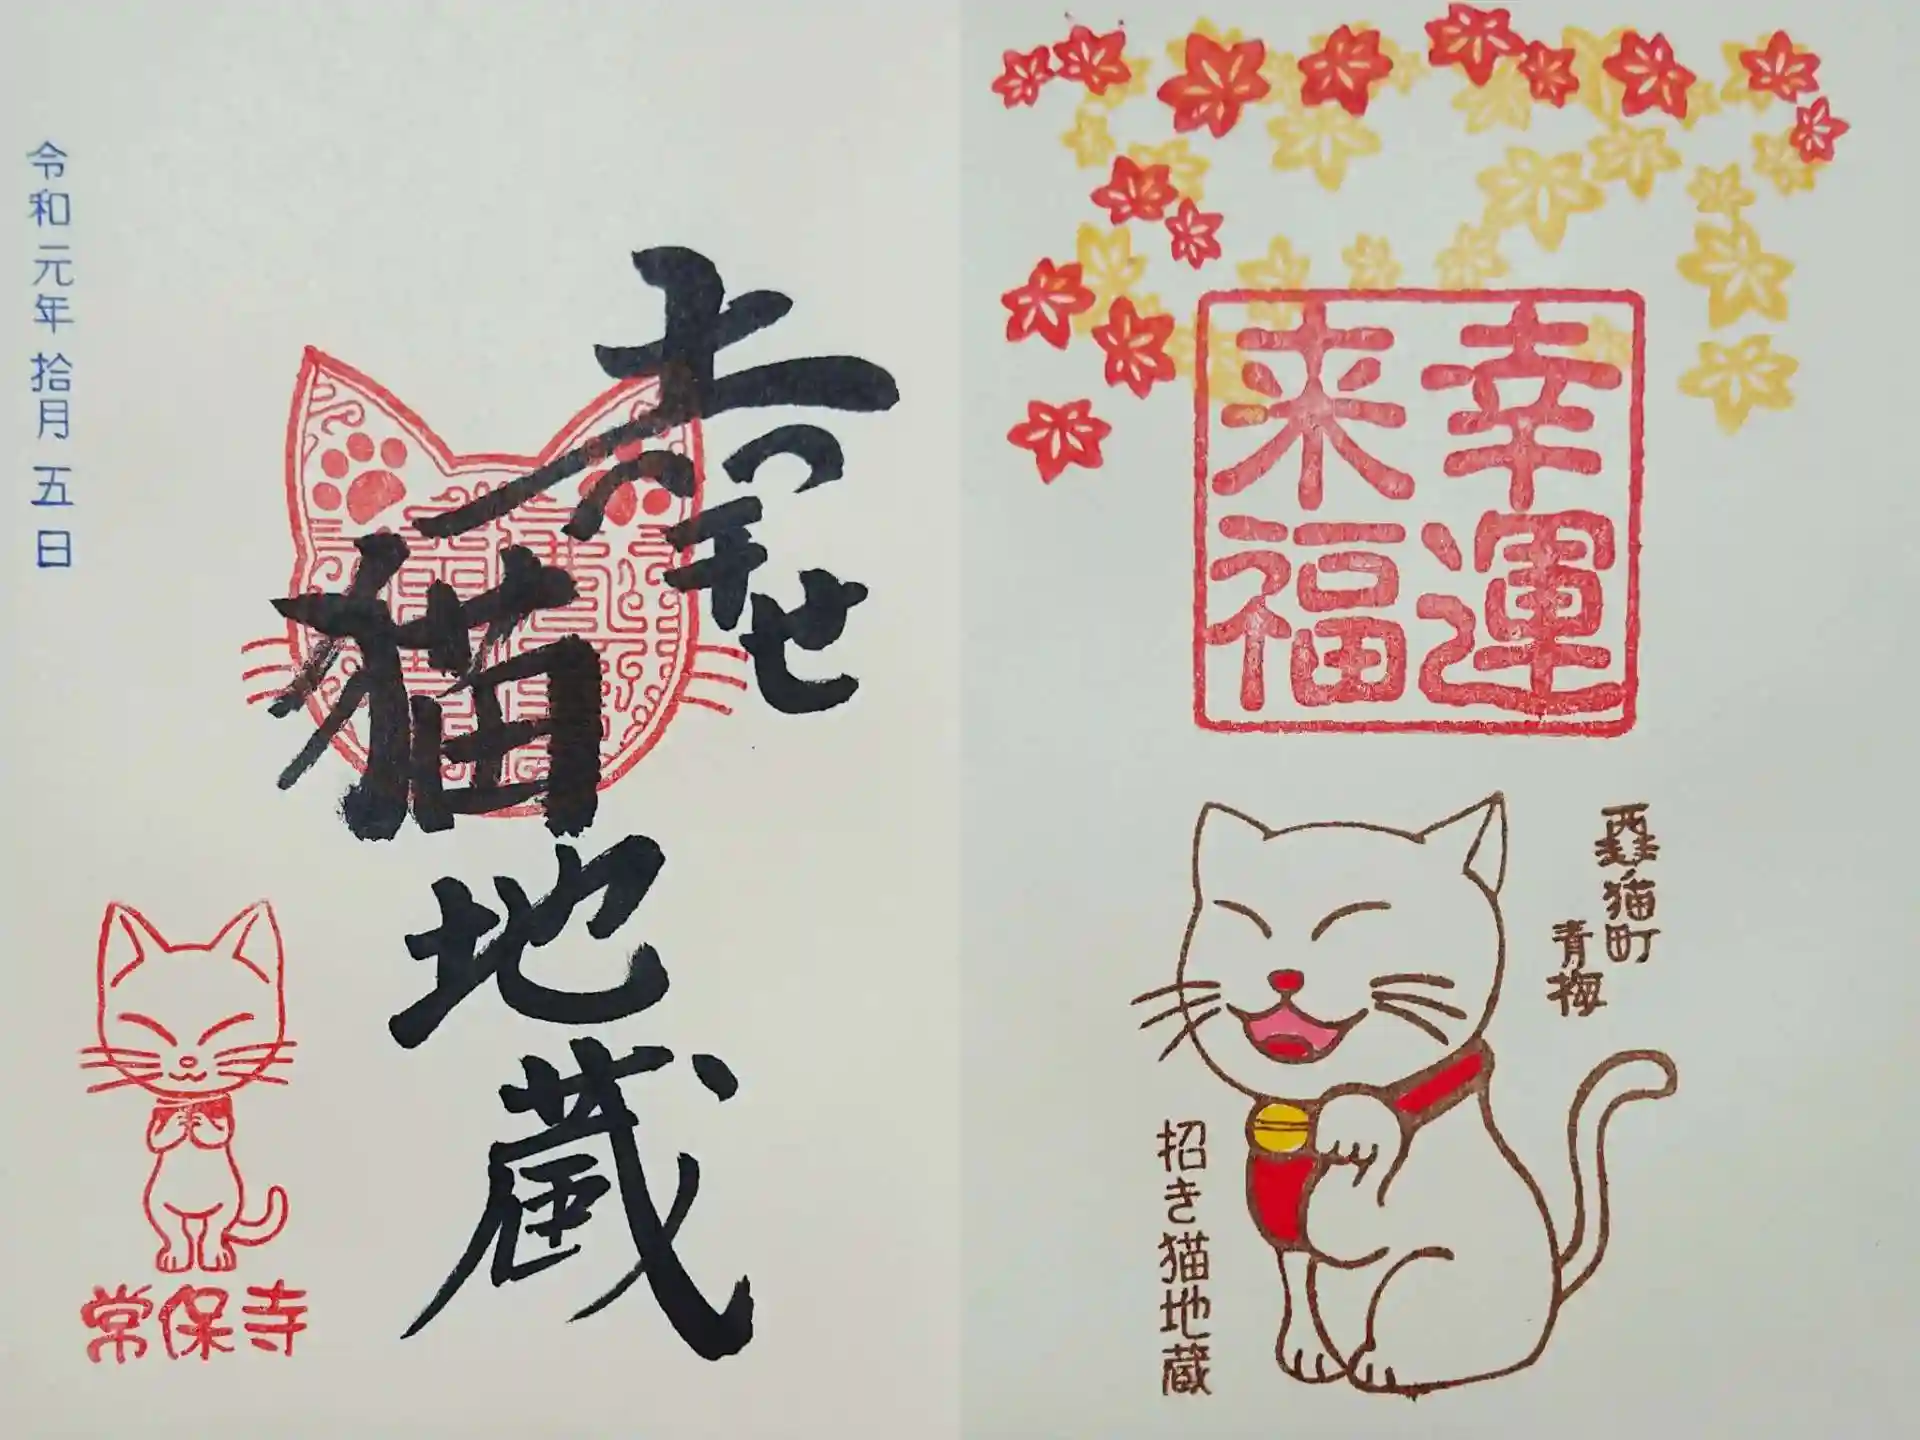 幸せ
猫地蔵
令和元年拾月五日
常保寺
幸運
来福
猫町
青梅
招き猫地蔵